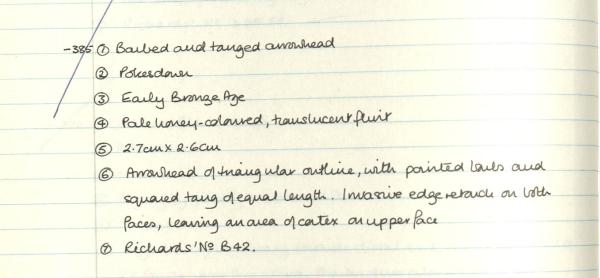 -385 ① Barbed and tanged arrowhead
② Pokesdown
③ Early Bronze Age
④ Pale honey-coloured, translucent flint
⑤ 2.7cm x 2.6cm
⑥ Arrowhead of triangular outline, with pointed barbs and
squared tang of equal length. Invasive edge retouch on both
faces, leaving an area of cortex on upper face
⑦ Richards' No B42.